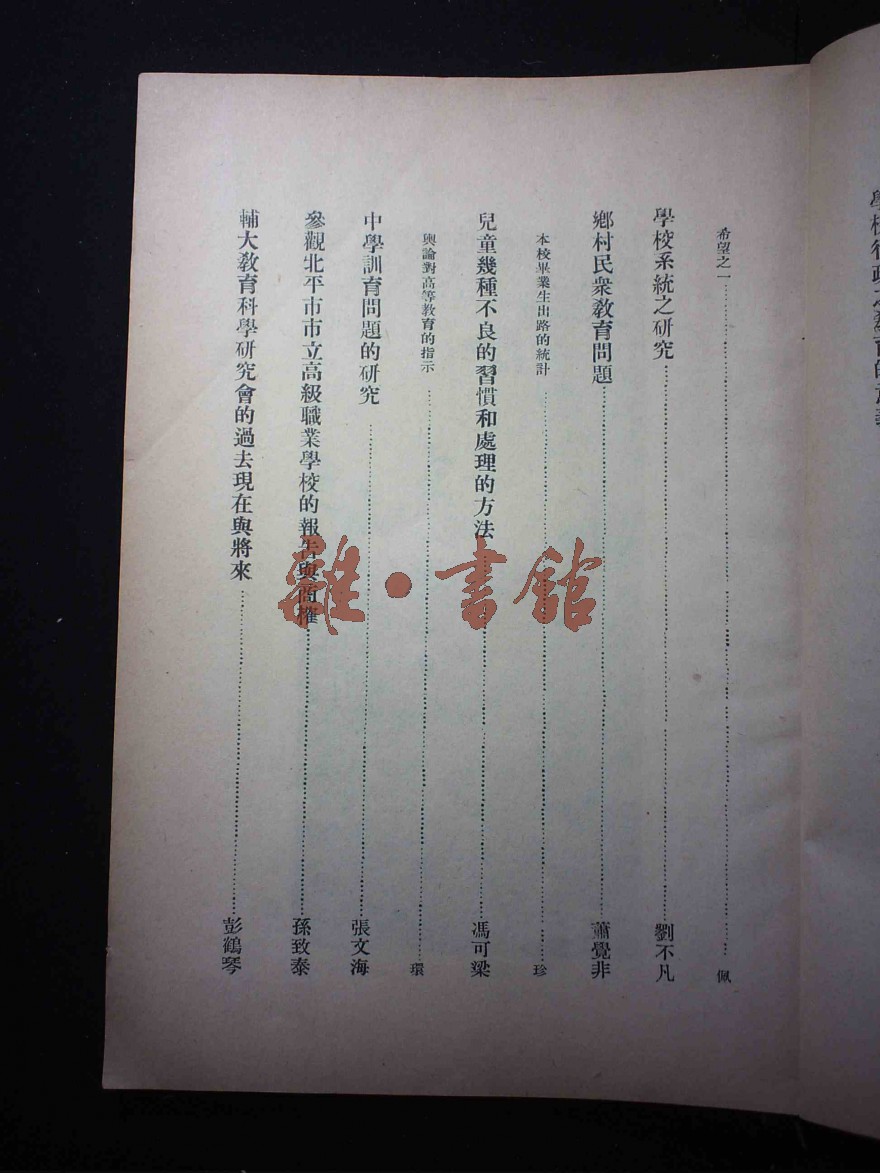 希望之一……佩
學校系統之研究……劉不凡
鄉村民衆敎育問題……蕭覺非
本校畢業生出路的統計……珍
兒童幾種不良的習慣和處理的方法……馮可梁
輿論對高等敎育的指示……環
中學訓育問題的研究……張文海
參觀北平市市立高級職業學校的報吿與商榷……孫致泰
輔大敎育科學硏究會的過去現在與將來……彭鶴琴
雜·書館